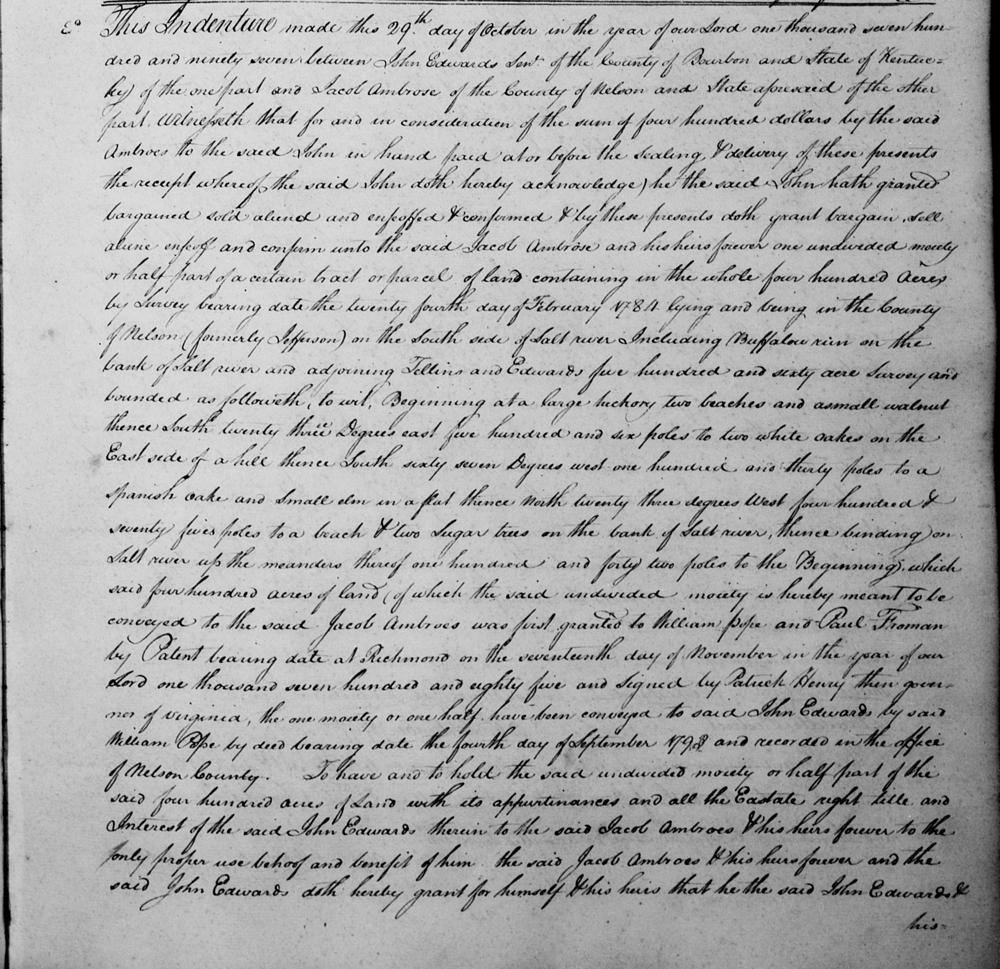 This Indenture made this 29th day of October in the year of our Lord one thousand seven hun-
dred and ninety seven between John Edwards Senr of the County of Bourbon and State of Kentuc-
ky) of the one part and Jacob Ambrose of the County of Nelson and State aforesaid of the other
part. Witnesseth that for and in consideration of the sum of four hundred dollars by the said
Ambroes to the said John in hand paid at or before the sealing & delivery of these presents
the receipt whereof the said John doth hereby acknowledge) he the said John hath granted
bargained sold aliend and enfeoffed & confirmed & by these presents doth grant bargain, sell
aliene enfeoff and confirm unto the said Jacob Ambrose and his heirs forever one undivided moiety
or half part of a certain tract or parcel of land containing in the whole four hundred Acres
by Survey bearing date the twenty fourth day of February 1784 lying and being in the County
of Nelson (formerly Jefferson) on the South side of Salt river Including Buffalow run on the
bank of Salt river and adjoining and Edwards five hundred and sixty acre Survey and
bounded as followeth, to wit, Beginning at a large hickory two beaches and a small walnut
thence South twenty three Degrees east five hundred and six poles to two white oakes on the
East side of a hill thence South sixty seven Degrees west one hundred and thirty poles to a
Spanish oake and Small elm in a flat thence North twenty three degrees West four hundred &
seventy five poles to a beach & two Sugar trees on the bank of Salt river, thence binding on
Salt river up the meanders thereof one hundred and forty two poles to the Beginning, which
said four hundred acres of land (of which the said undivided moiety is hereby meant to be
conveyed to the said Jacob Ambroes was first granted to William Pope and Paul Froman
by Patent bearing date at Richmond on the seventeenth day of November in the year of our
Lord one thousand seven hundred and eighty five and Signed by Patrick Henry then gover-
nor of virginia, the one moiety or one half have been conveyed to said John Edwards by said
William Pope by deed bearing date the fourth day of September and recorded in the office
of Nelson County. To have and to hold the said undivided moiety or half part of the
said four hundred acres of Land with its appurtinances and all the Eastate right title and
Interest of the said John Edwards therein to the said Jacob Ambroes & his heirs forever to the
only proper use behoof and benefit of him the said Jacob Ambroes & his heirs forever and the
said John Edwards doth hereby grant for himself & his heirs that he the said John Edwards &
his